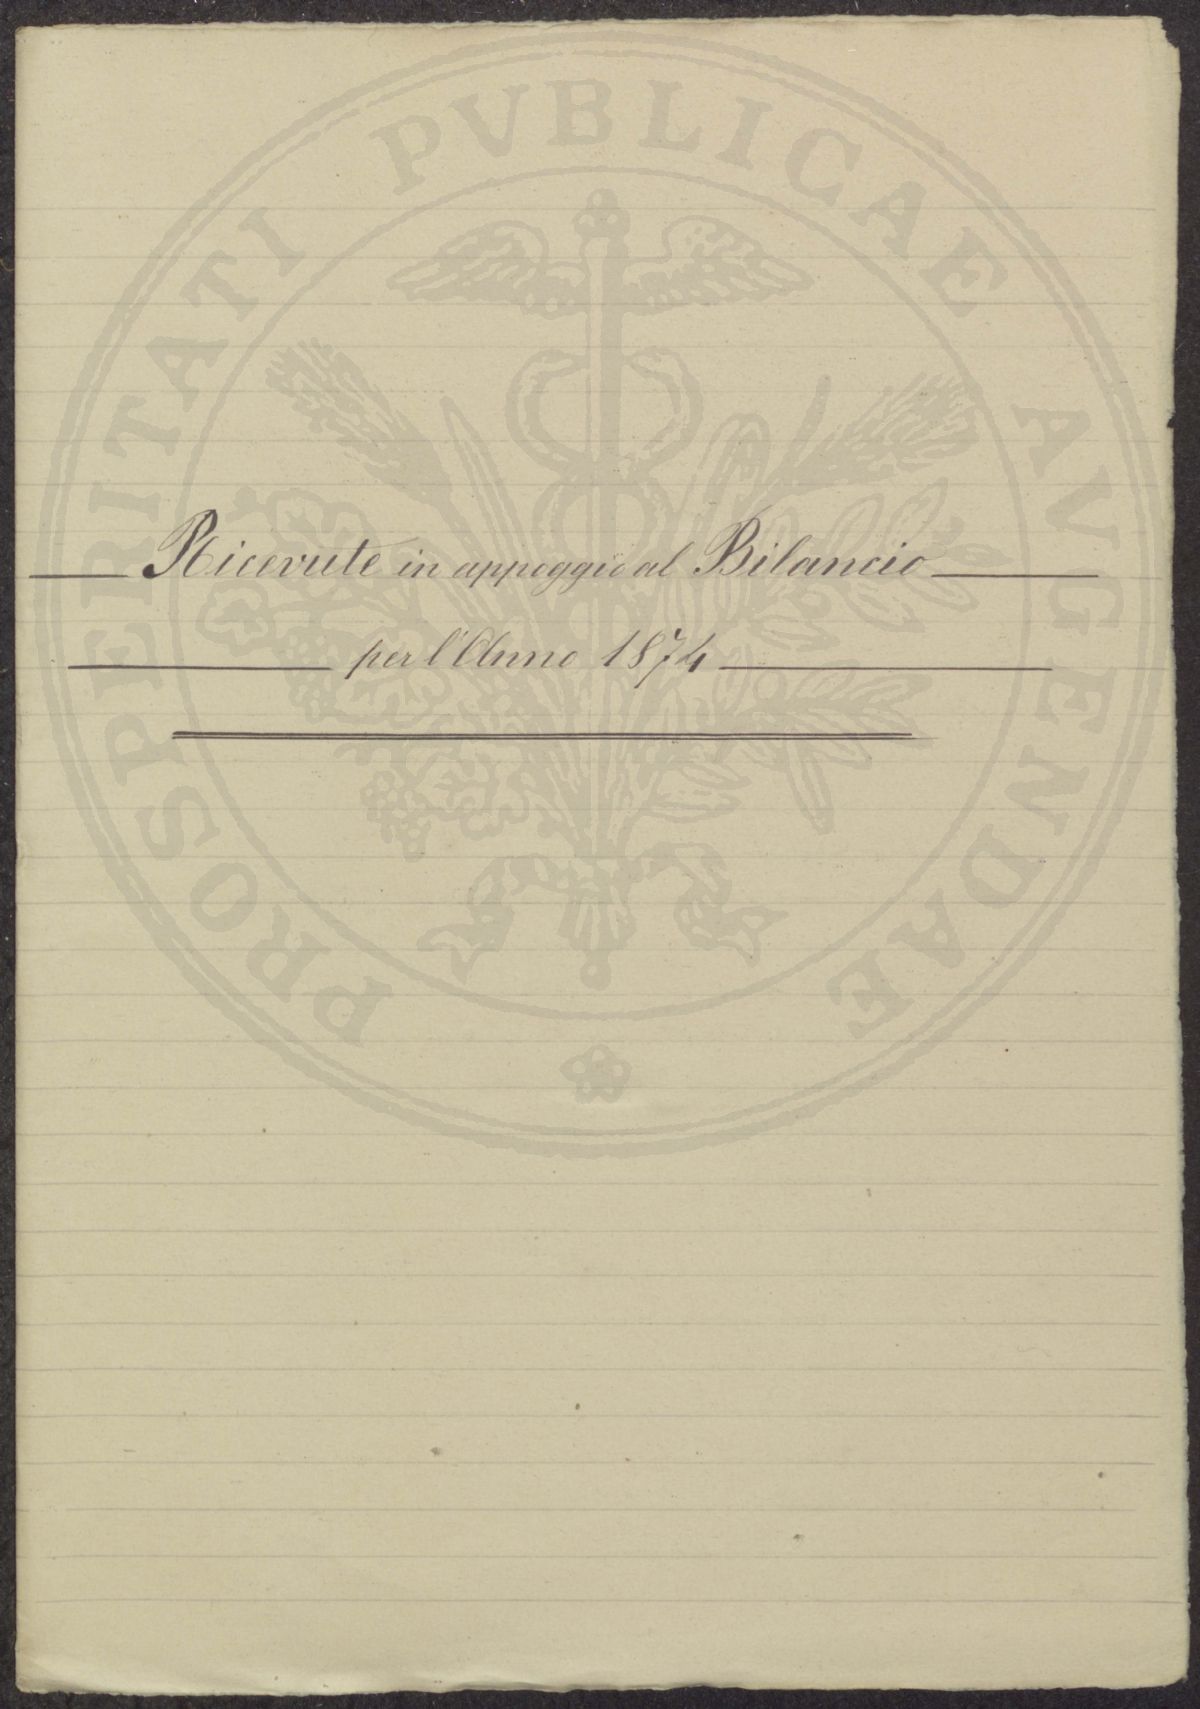 PROSPERITATI PVBLICAE AVGENDAE
Ricevute in appoggio al Bilancio
per l'Anno 1874